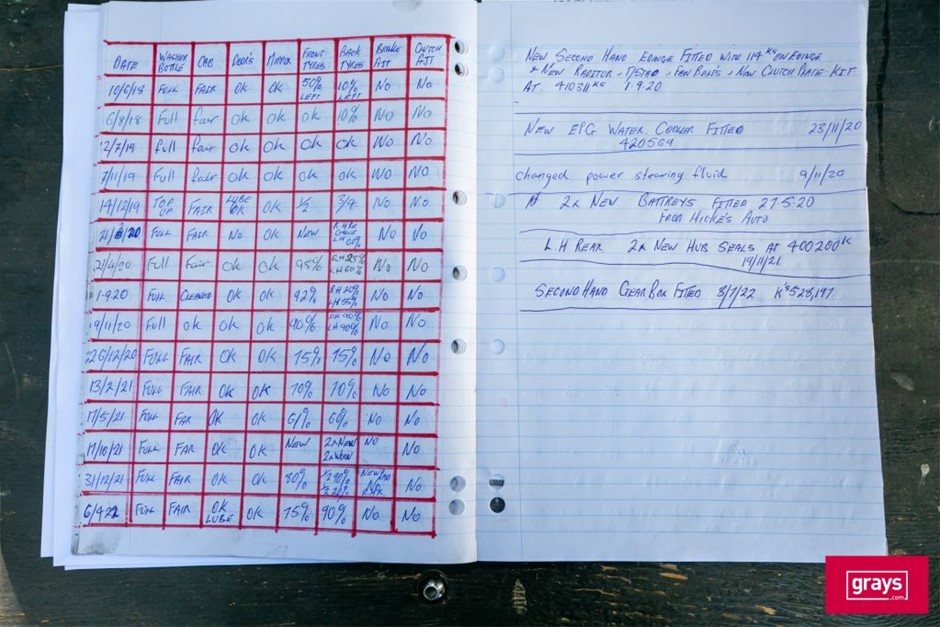 DATE WASHER BOTTLE CAB DOORS MIRROR FRONT TYRES BACK TYRES BRAKE AJT CLUTCH AJT
10/6/18 FULL FAIR OK OK 50% LEFT 10% LEFT No No
6/8/18 Full fair ok ok ok 10% No No
2/7/19 full fair ok ok ok ok No No
7/11/19 Full fair ok ok ok ok No No
14/12/19 TOP UP FAIR LUBE OK OK 1/2 3/4 No No
FULL FAIR No OK NEW No No
2/4/20 Full Fair Ok Ok 95% No No
1-9-20 FULL CLEANED OK OK 92% No No
9/11/20 Full ok ok ok 90% No No
26/12/20 FULL FAIR OK OK 75% 75% No No
13/2/21 FULL FAIR OK OK 70% 70% No No
17/5/21 FULL FAR OK OK 61% 60% No No
17/10/21 FULL FAR OK OK NEW 2xNEW 2xWORN NO No
31/12/21 FULL FAIR OK OK 80% No
6/4/22 FULL FAIR OK LUBE OK 75% 90% No No
NEW SECOND HAND ENGINE FITTED WITH 114 KS ON ENGINE
+ NEW RADITOR - T/STAD - FAN BELTS - NEW CLUTCH PLATE KIT
AT 410311 KS 1-9-20
NEW EPG WATER COOLER FITTED 23/11/20
420569
changed power stearing fluid 9/11/20
2x NEW BATTREYS FITTED 27-5-20
FROM HICKE'S AUTO
L H REAR 2x NEW HUB SEALS AT 400200K
19/11/21
SECOND HAND GEAR BOX FITTED 3/7/22 KS 528,197
grays
.com